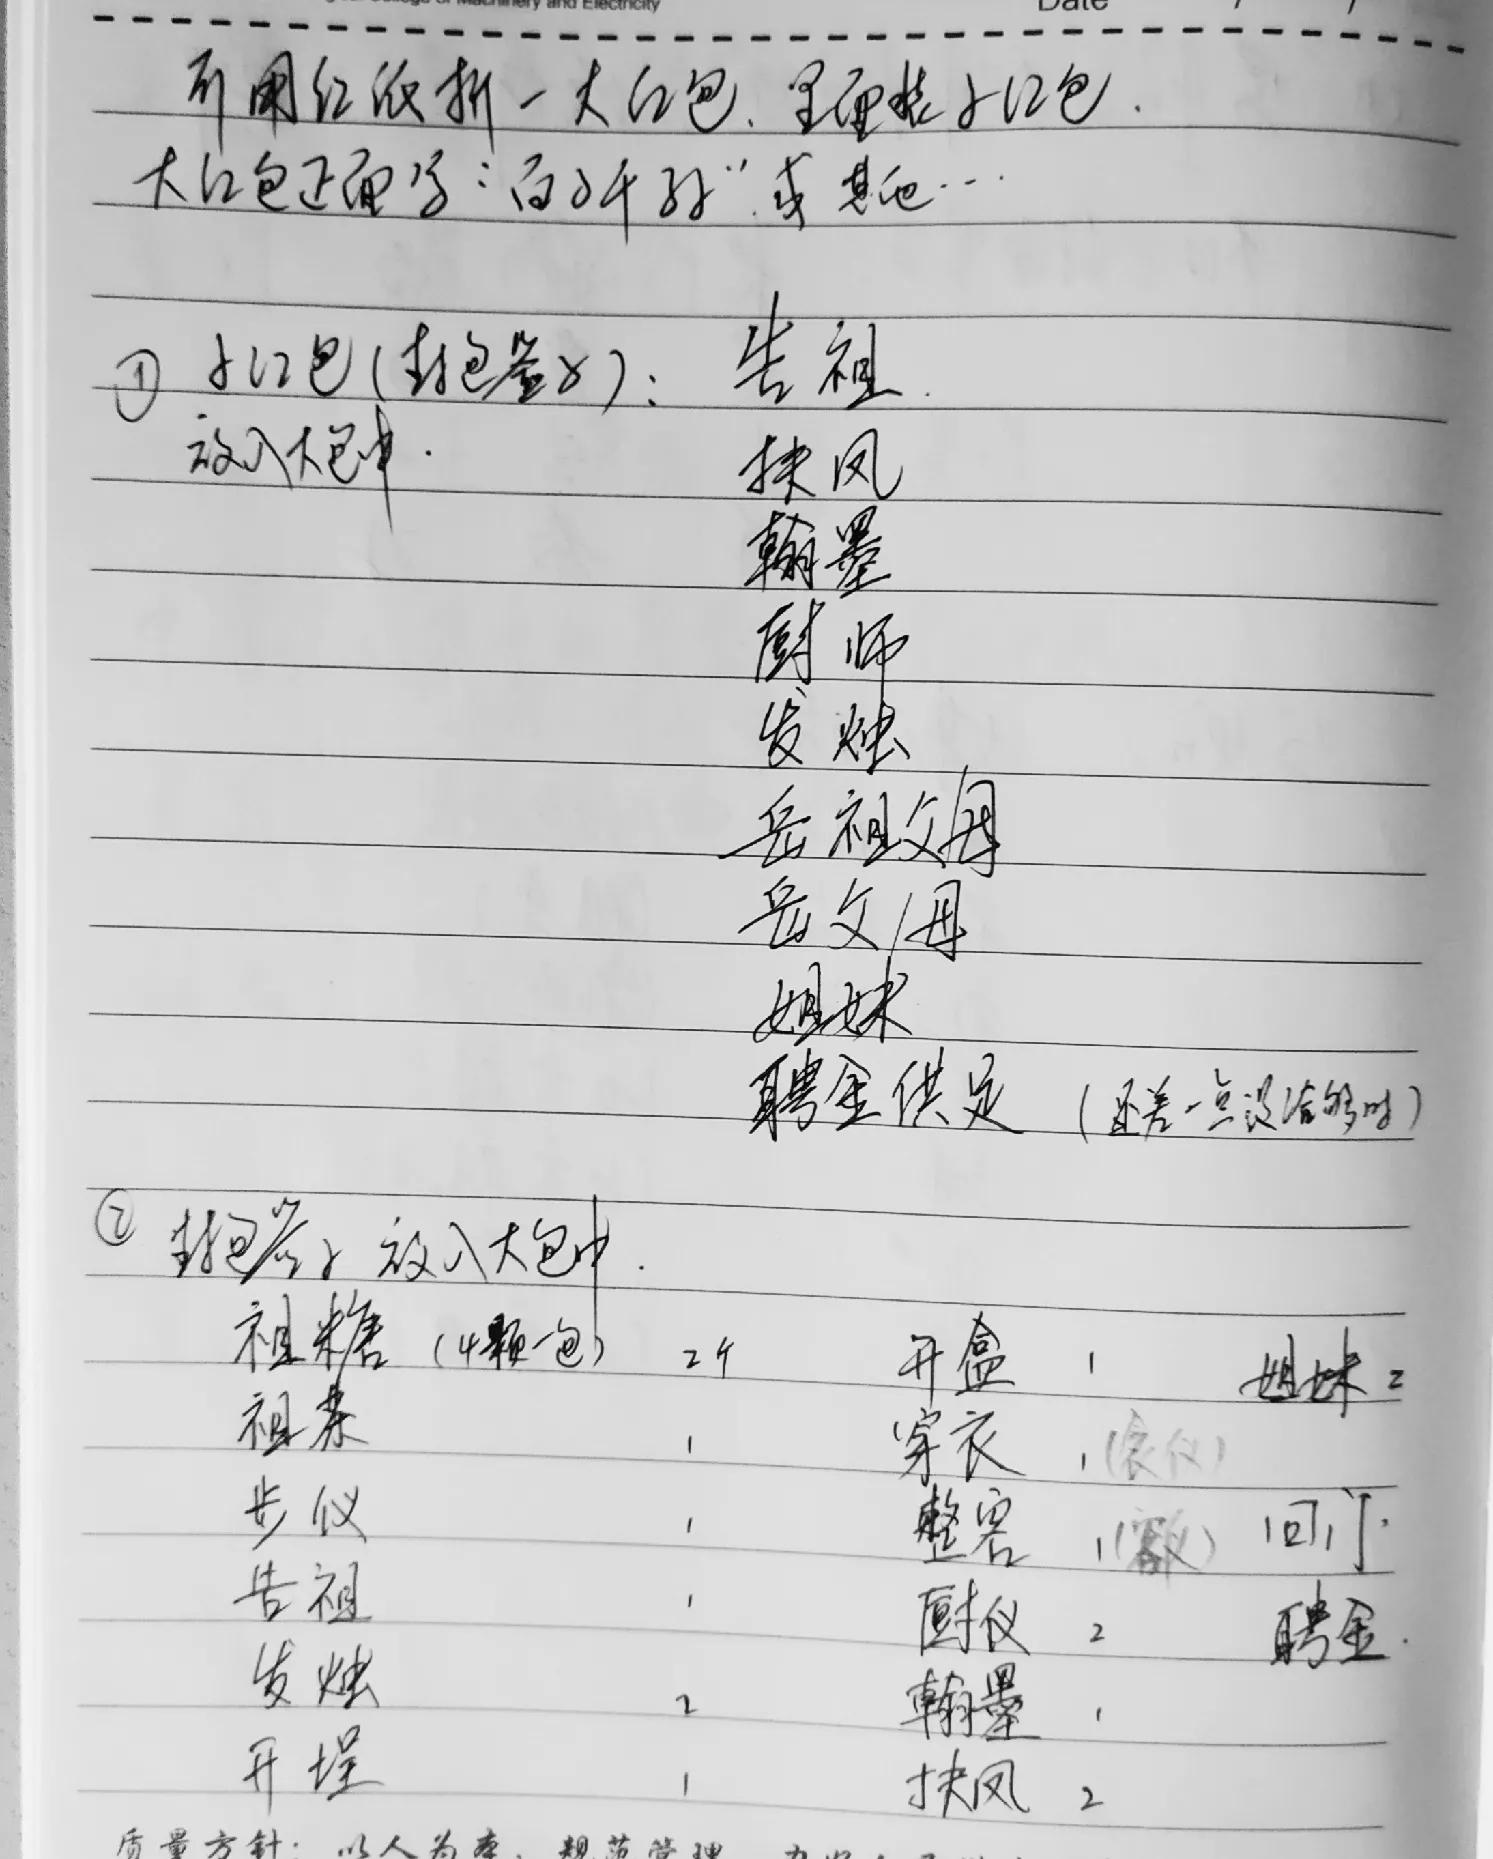 College of Machinery and Electricity Date / /
可用红纸折一大红包.里面装小红包.
大红包正面写:"百子千孙"或其他…
① 小红包(封包签子): 告祖.
放入大包中.
扶凤
翰墨
厨师
发烛
岳祖父/母
岳父/母
姐妹
聘金供足 (还差一点没给够时)
② 封包签子 放入大包中.
祖糖 (4颗一包) 2个 开盒 1 姐妹 2
祖茶 1 穿衣 1 (衣仪)
步仪 1 整容 1 (容仪) 1 回门.
告祖 1 厨仪 2 聘金.
发烛 2 翰墨 1
开埕 1 扶凤 2
质量方针: 以人为本、规范管理